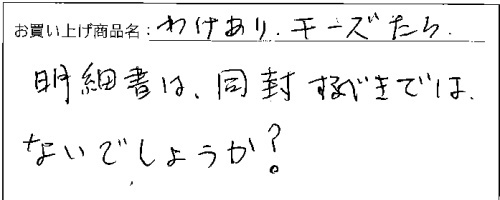 お買い上げ商品名：わけあり.チーズたら.
明細書は、同封するべきでは、
ないでしょうか？